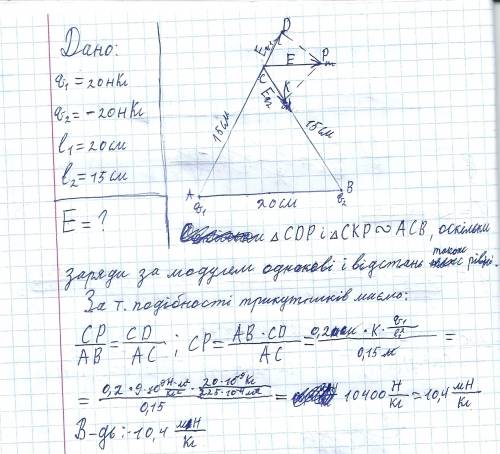 Дано:
q₁ = 20нКл
q₂ = -20нКл
l₁ = 20см
l₂ = 15см
E = ?
D
E q₁
P
E
C
K
E q₂
15см
15см
A
q₁
20см
B
q₂
△CDP і △CKP ∾ ACB, оскільки
заряди за модулем однакові і відстань також рівні.
За т. подібності трикутників маємо:
CP/AB = CD/AC ; CP = AB·CD/AC = 0,2м · K · q₁/l₂² / 0,15м =
= 0,2 · 9·10⁹ Н·м²/Кл² · 20·10⁻⁹Кл/225·10⁻⁴м² / 0,15 = 10400 Н/Кл = 10,4 мН/Кл
В-дь: -10,4 мН/Кл